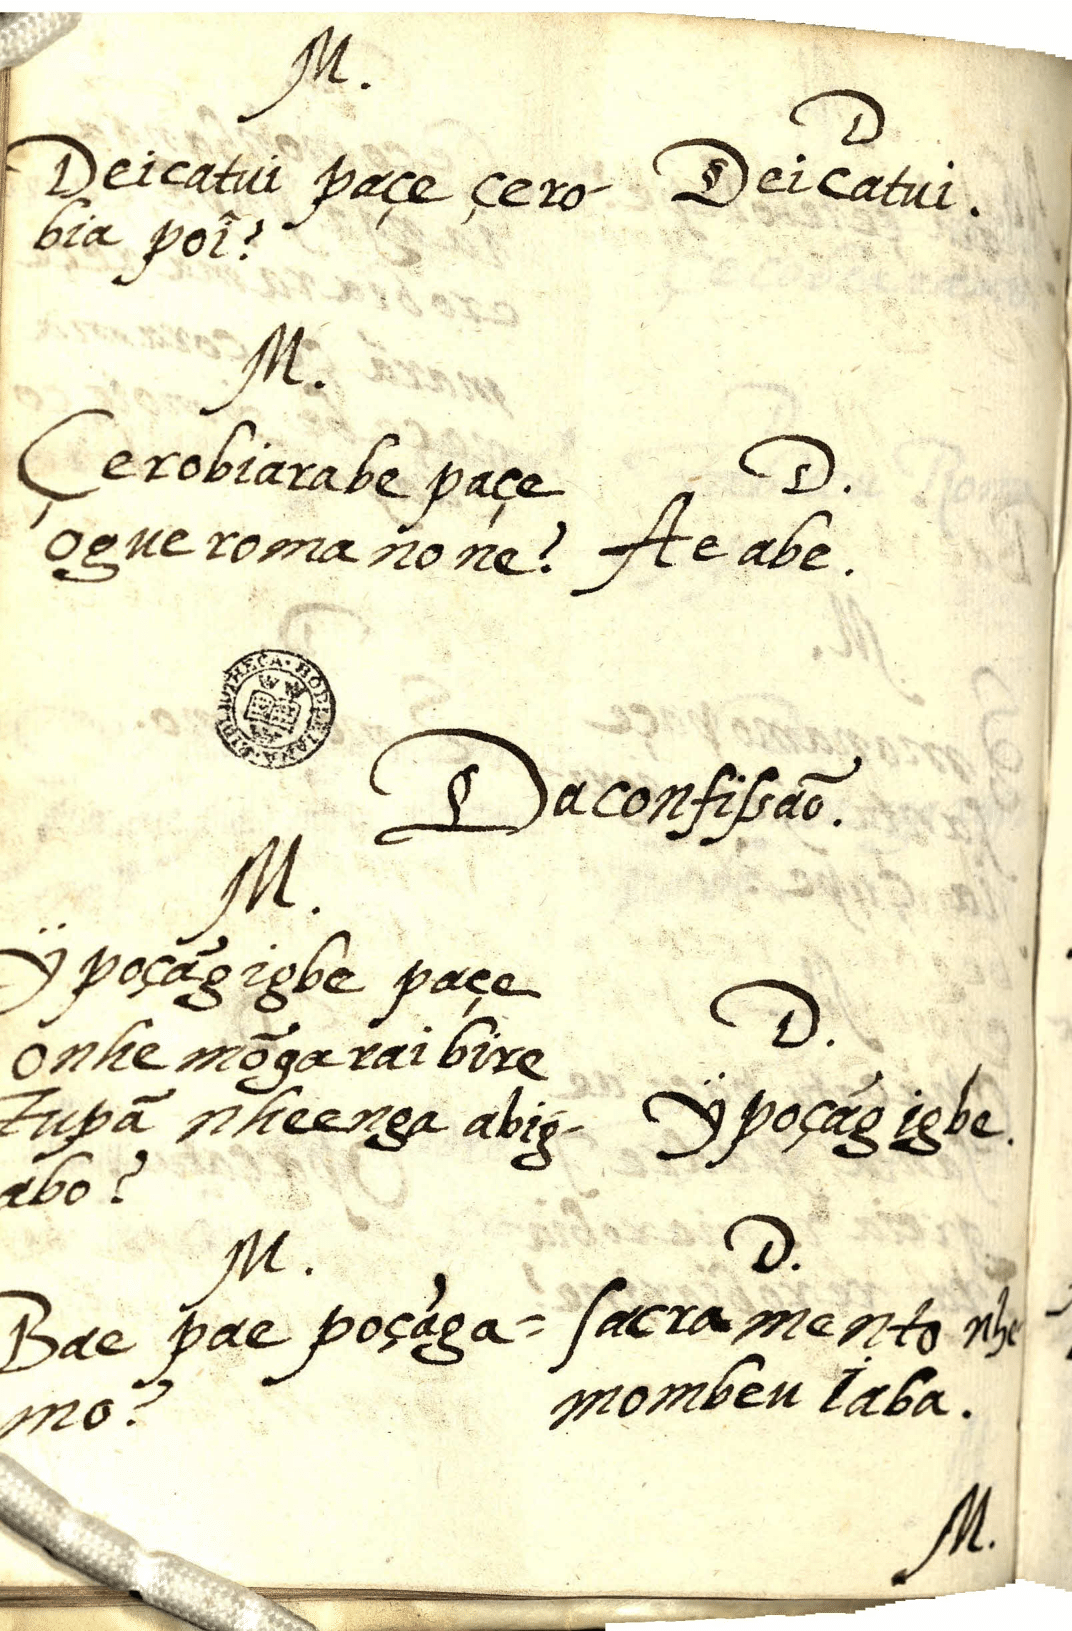 M.
Deicatui paçe çero-
bia poĩ?
D
Deicatui.
M.
Çerobiarabe paçe
ogue roma no ne?
D.
Ae abe.
BIBLIOTHECA · BODLEIANA
Da confissaõ.
M.
Ÿ poçãg igbe paçe
onhe mõga rai bire
Tupã nheenga abig-
abo?
D.
Ÿ poçág igbe.
M.
Bae pae poçága=
mo?
D.
sacramento nhe
mombeu iaba.
M.